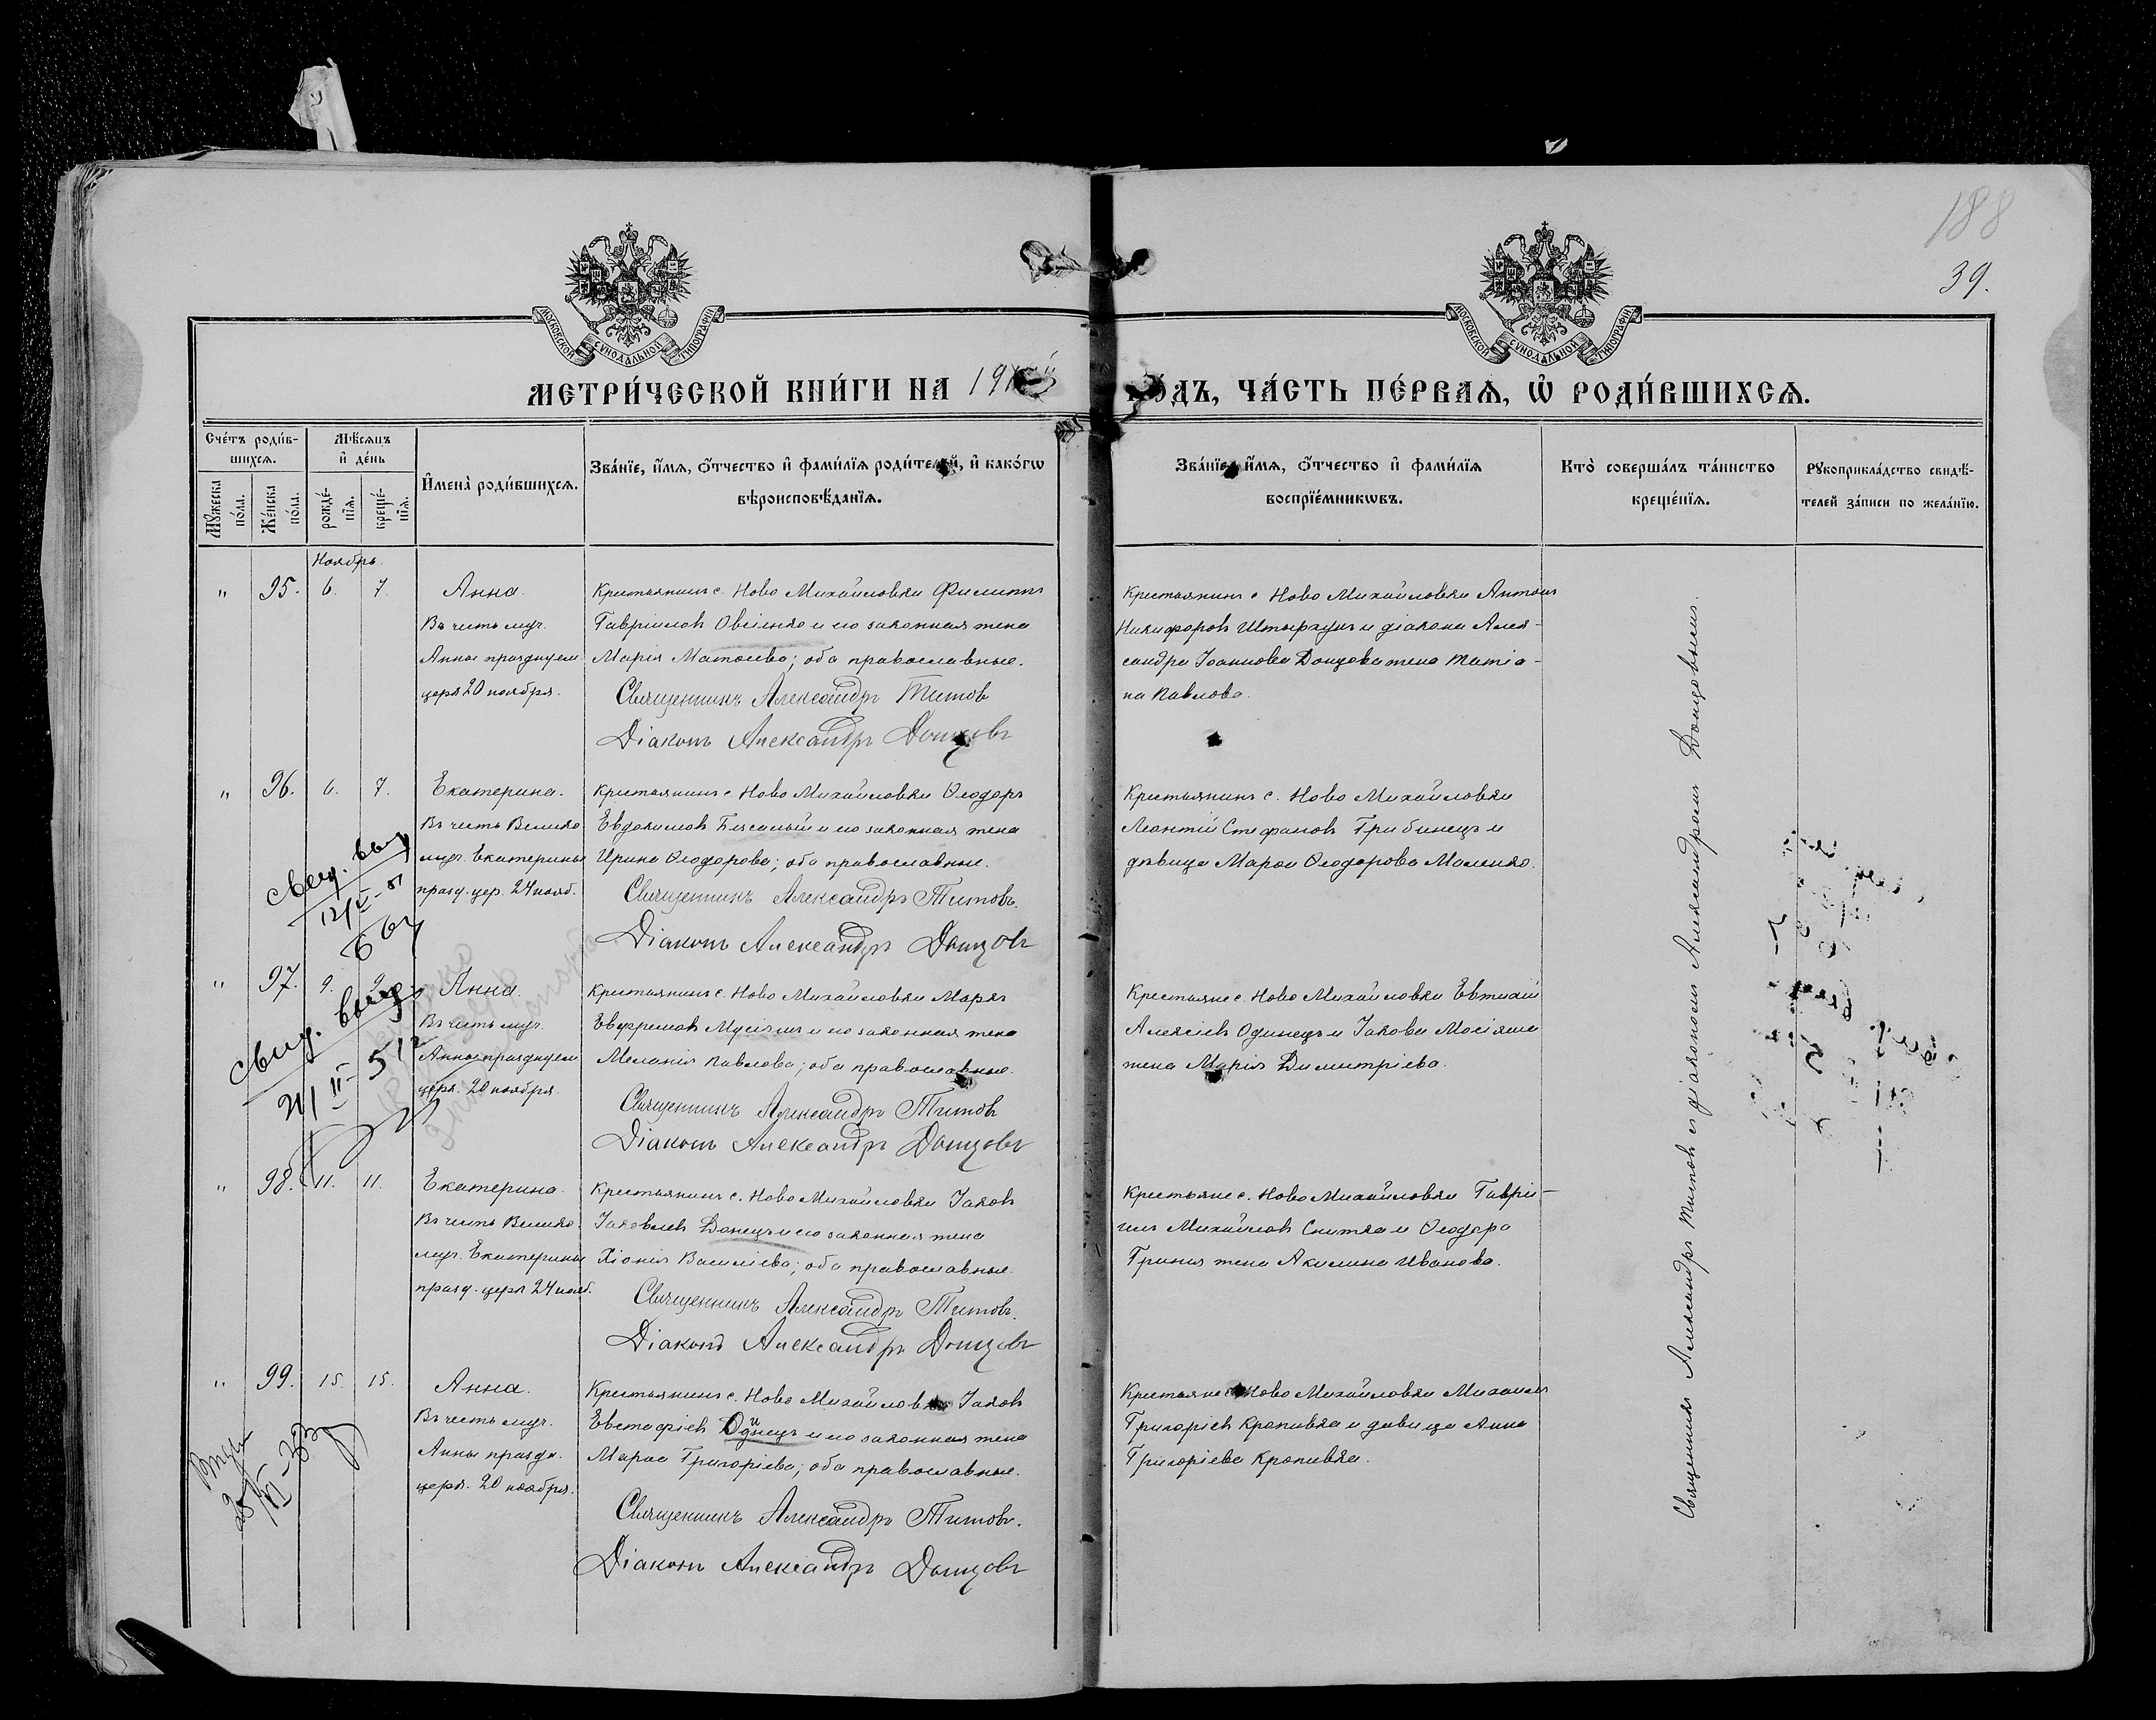 188
39.
МОСКОВСКОЙ СѴНОДАЛЬНОЙ ТИПОГРАФІИ
МОСКОВСКОЙ СѴНОДАЛЬНОЙ ТИПОГРАФІИ
МЕТРИ́ЧЕСКОЙ КНИ́ГИ НА 19
ГО́ДЪ, ЧА́СТЬ ПЕ́РВАѦ, Ѡ҆ РОДИ́ВШИХСѦ.
Сче́тъ роди́в-
шихсѧ.
Мѣ́сѧцъ
и҆ де́нь
Мꙋ́жеска по́ла.
Же́нска по́ла.
рожде́-нїѧ.
креще́-нїѧ.
И҆мена̀ роди́вшихсѧ.
Зва́нїе, и҆́мѧ, ѻ҆́тчество и҆ фами́лїѧ роди́телей, и҆ како́гѡ
вѣроисповѣ́данїѧ.
Зва́нїе, и҆́мѧ, ѻ҆́тчество и҆ фами́лїѧ
воспрїе́мникѡвъ.
Кто̀ соверша́лъ та́инство
креще́нїѧ.
Рꙋкоприкла́дство свидѣ́-
телей за́писи по жела́нїю.
Ноябрь
" 95. 6. 7. Анна.
Въ честь муч.
Анны празднуем.
церк 20 ноября.
Крестьянинъ с. Ново Михайловки Филиппъ
Гавриловъ Овсіенко и его законная жена
Марія Матѳеева; оба православные.
Священникъ Александръ Титовъ
Діаконъ Александръ Донцовъ
Крестьянинъ с Ново Михайловки Антонъ
Никифоровъ Штырхунъ и діакона Алек-
сандра Іоаннова Донцова жена Татіа-
на Павлова.
" 96. 6. 7. Екатерина.
Въ честь Велико
муч. Екатерины
празд. цер. 24 нояб.
Крестьянинъ с. Ново Михайловки Ѳеодоръ
Евдокимовъ и его законная жена
Ирина Ѳеодорова; оба православные.
Священникъ Александръ Титовъ.
Діаконъ Александръ Донцовъ
Крестьянинъ с. Ново Михайловки
Леонтій Стефановъ Грибинецъ и
дѣвица Марѳа Ѳеодорова Моленко.
свид. выд
" 97. 9. 9. Анна.
Въ честь муч.
Анны празднуем
церк. 20 ноября.
Крестьянинъ с. Ново Михайловки Маркъ
Евфремовъ и его законная жена
Меланія Павлова; оба православные.
Священникъ Александръ Титовъ
Діаконъ Александръ Донцовъ
Крестьяне с. Ново Михайловки Евтихій
Алексіевъ Одинецъ и Іакова
жена Марія Димитріева.
свид. выд.
21/II- 51
" 98. 11. 11. Екатерина.
Въ честь Велико.
муч. Екатерины
празд. церк 24 нояб.
Крестьянинъ с. Ново Михайловки Іаковъ
Іаковлевъ Донецъ и его законная жена
Хіонія Василіева; оба православные.
Священникъ Александръ Титовъ.
Діаконъ Александръ Донцовъ
Крестьяне с. Ново Михайловки Гаврі-
илъ Михайловъ Снитка и Ѳеодора
Гриния жена Акилина Иванова.
" 99. 15. 15. Анна.
Въ честь муч.
Анны праздн.
церк. 20 ноября.
Крестьянинъ с. Ново Михайловки Іаковъ
Евстафіевъ Одинецъ и его законная жена
Марѳа Григоріева; оба православные.
Священникъ Александръ Титовъ.
Діаконъ Александръ Донцовъ
Крестьяне с Ново Михайловки Михаилъ
Григоріевъ Кропивка и дѣвица Анна
Григоріева Кропивка.
Священникъ Александръ Титовъ съ діакономъ Александромъ Донцовымъ.